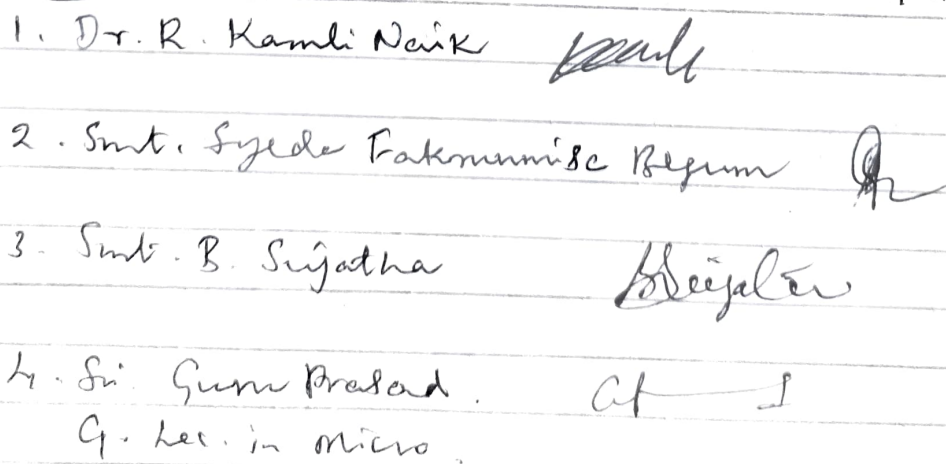 1. Dr. R. Kamli Naik
2. Smt. Syeda Fakrunnisa Begum
3. Smt. B. Sujatha BSujatha
4. Sri Guru Prasad.
G. Lec. in Micro.